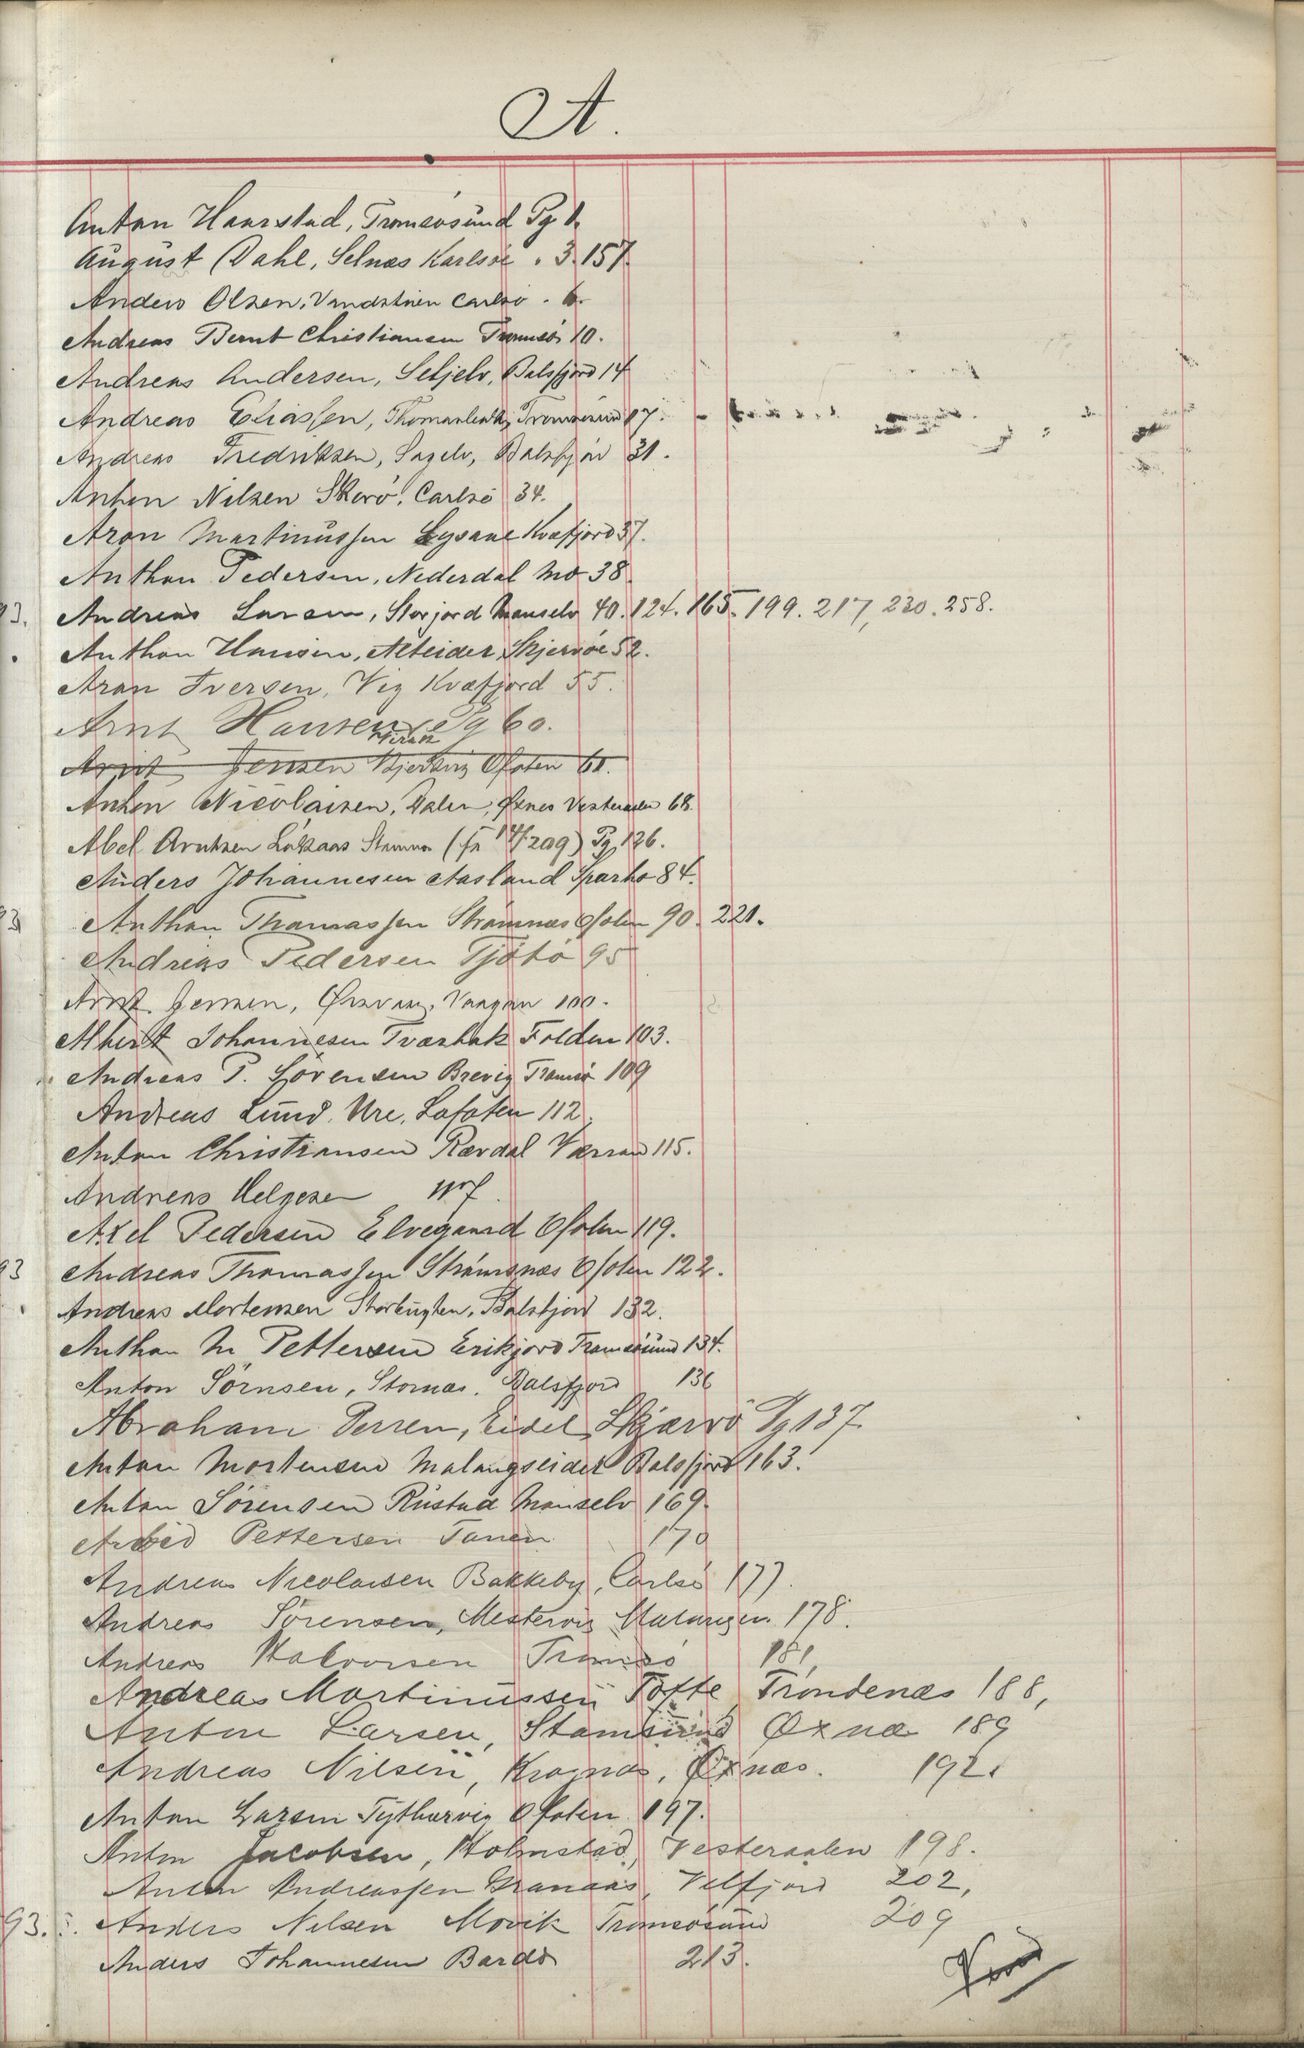 A.
Anton Haarstad, Tromsösund Pg 1.
August Dahl, Selnæs Karlsöe . 3. 157.
Anders Olsen, Carlsö . 6.
Andreas Bernt Christiansen Tromsö 10.
Andreas Andersen, Seljelv, Balsfjord 14
Andreas Eliassen, Tromsösund 17.
Andreas Fredriksen, Sagelv, Balsfjor 31.
Anton Nilsen Skorö, Carlsö 34.
Aron Martinussen Kvæfjord 37.
Anthon Pedersen, Nederdal Mo 38.
93. Andreas Larsen, Storjord Maaselv 40. 124. 165. 199. 217, 230. 258.
Anthon Hansen, Alteidet Skjervöe 52.
Aron Iversen, Vig Kvæfjord 55.
Arnt Hansen Pg 60.
Arnt Jensen Ofoten 60.
Anton Nicolaisen, Dalen, Öxnes Vesteraalen 68.
Abel Arntzen Pg 126.
Anders Johannesen Aasland Sparbo 84.
93 Anthon Thomassen Strömnæs Ofoten 90. 221.
Andreas Pedersen Tjötö 95
Arnt Jensen, Vaagan 100.
Albert Johannesen Tværbak Folden 103.
Andreas P. Sörensen Brevig Tromsö 109
Andreas Lund, Ure, Lofoten 112.
Anton Christiansen Rævdal Værran 115.
Andreas Helgesen
Axel Pedersen Elvegaard Ofoten 119.
93 Andreas Thomassen Strömsnæs Ofoten 122.
Andreas Mortensen Storbugten, Balsfjord 132.
Anthon M Pettersen Erikjord Tromsösund 134.
Anton Sörnsen, Stornæs, Balsfjord 136
Abraham Persen, Eidet, Skjærvö Pg 137
Anton Mortensen Malangseidet Balsfjord 163.
Anton Sörensen Rustad Maaselv 169.
Pettersen Tanen 170
Andreas Nicolaisen Bakkeby, Carlsö 177.
Andreas Sörensen, Mestervig Malangen 178.
Andreas Halvorsen Tromsö 181,
Andreas Martinussen Tofte, Tröndenæs 188,
Anton Larsen, Stamsund Öxnæ 189
Andreas Nilsen, Kragnæs, Öxnæs. 192.
Anton Larsen Ofoten 197.
Anton Jacobsen, Holmstad, Vesteraalen 198.
Anton Andreassen Granaas, Velfjord 202,
93. Anders Nilsen Movik Tromsösund 209
Anders Johannesen Bardo 213.